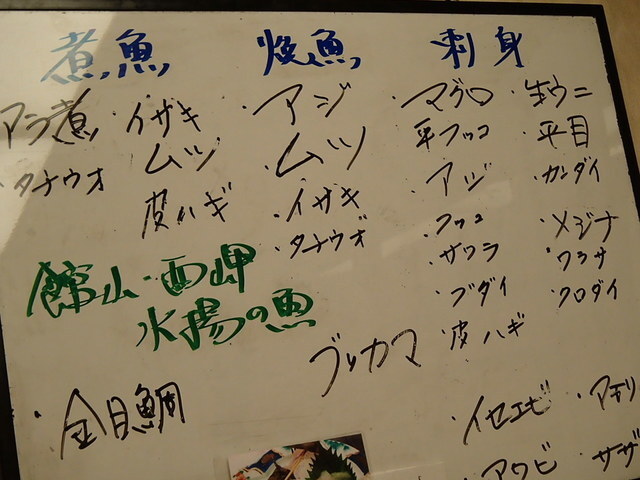 煮魚 焼魚 刺身
アラ煮 ・イサキ ・アジ ・マグロ ・生ウニ
・タチウオ ・ムツ ・ムツ ・平フッコ ・平目
皮ハギ ・イサキ ・アジ ・カンダイ
・タチウオ ・フッコ ・メジナ
・サワラ ・ワラサ
・ブダイ ・クロダイ
・皮ハギ
館山・西岬
水揚の魚
ブリカマ
・金目鯛
・イセエビ
・アワビ